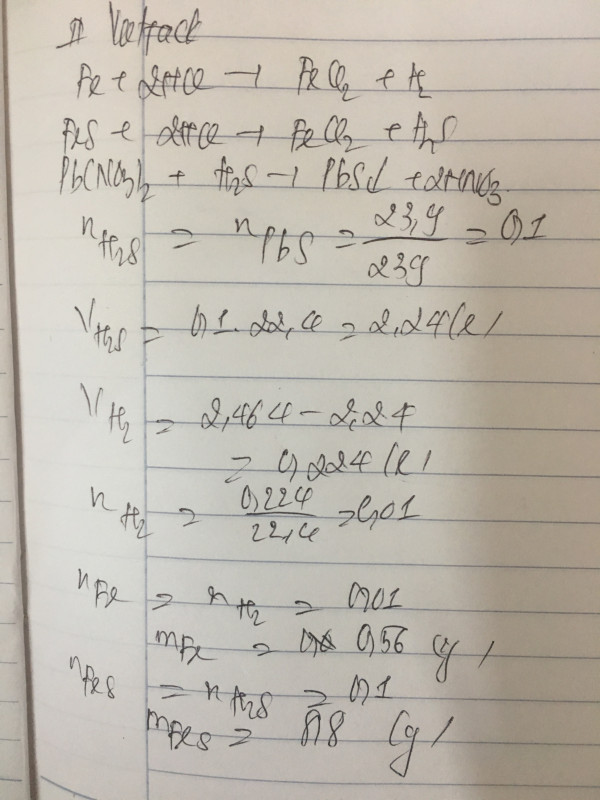 Fe + 2HCl → FeCl₂ + H₂
FeS + 2HCl → FeCl₂ + H₂S
Pb(NO₃)₂ + H₂S → PbS↓ + 2HNO₃
n H₂S = n PbS = 23,9 / 239 = 0,1
V H₂S = 0,1 . 22,4 = 2,24 (l)
V H₂ = 2,464 − 2,24
= 0,224 (l)
n H₂ = 0,224 / 22,4 = 0,01
n Fe = n H₂ = 0,01
m Fe = 0,56 (g)
n FeS = n H₂S = 0,1
m FeS = 8,8 (g)